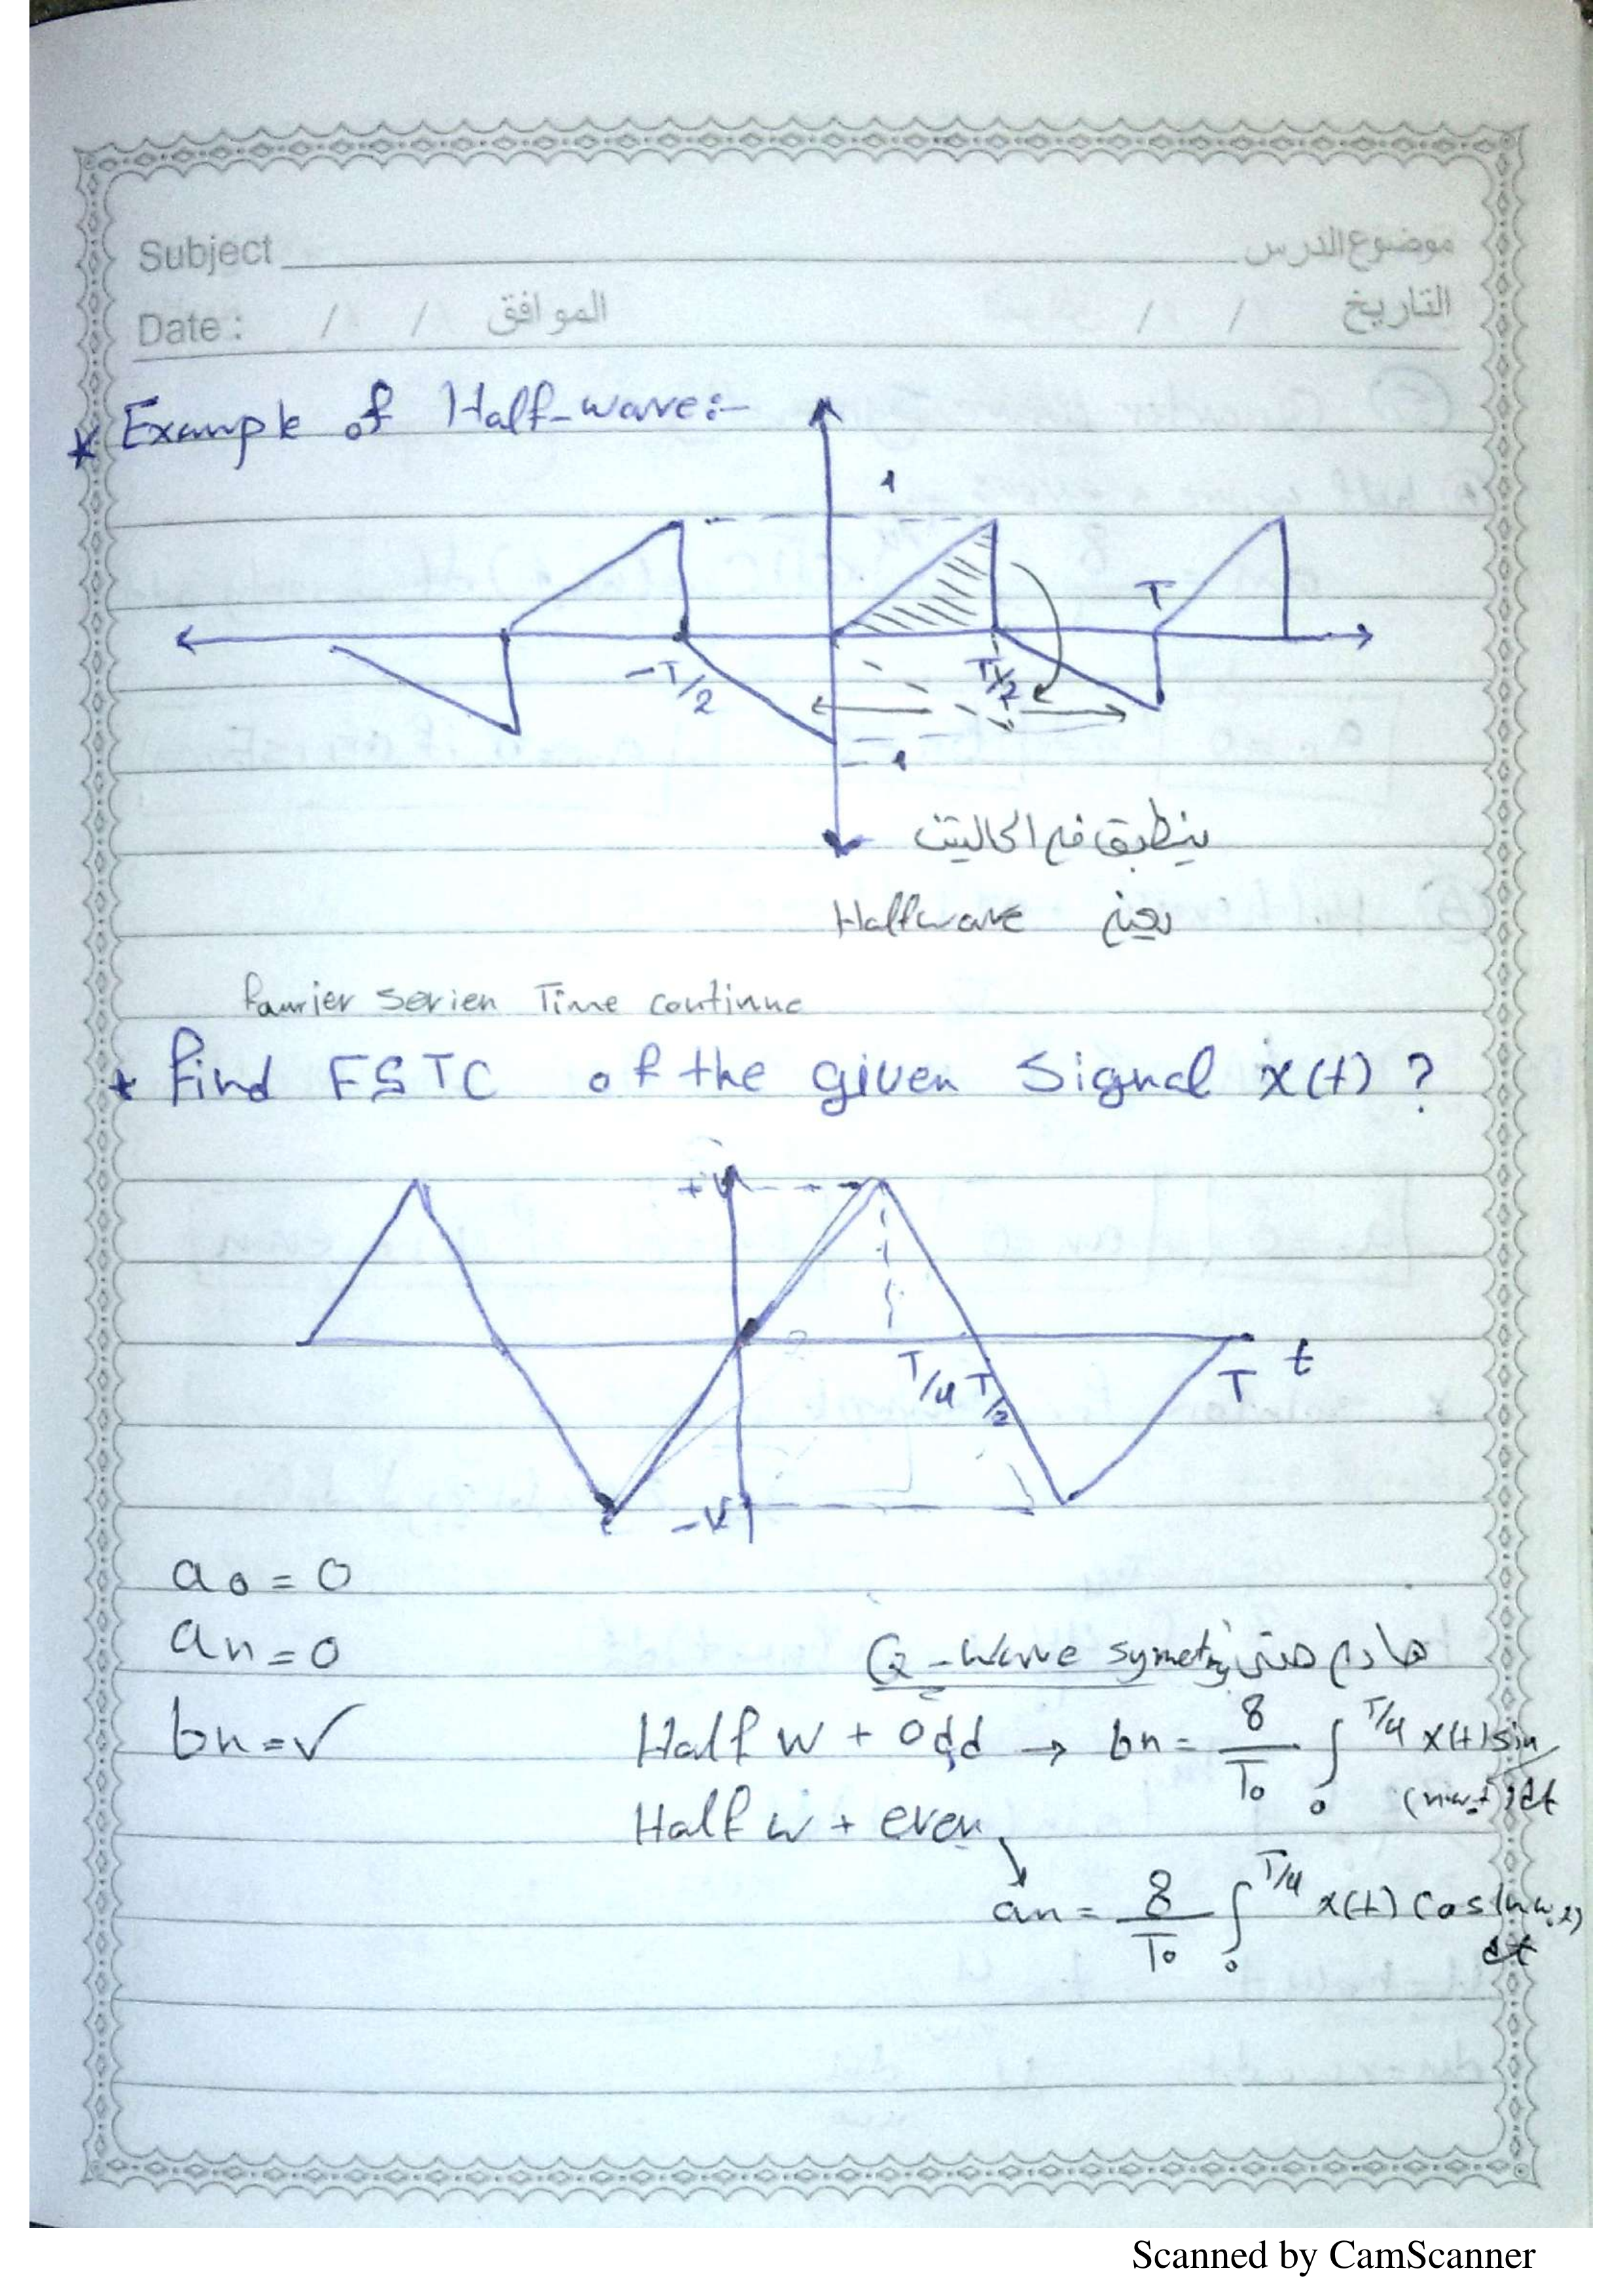 Subject
موضوع الدرس
Date : / / الموافق
/ / التاريخ
* Example of Half-wave:-
1
T
-T/2
T/2
-1
ينطبق في الحاليتين
Halfwave يعني
Fourier Serien Time continue
* Find FSTC of the given Signal x(t) ?
+V
T/4 T/2
T
t
-V
a0 = 0
an = 0
Q-wave symetry
bn = ✓
Half w + odd → bn = 8/T0 ∫0 T/4 x(t) sin
(nw0t) dt
Half w + even
an = 8/T0 ∫0 T/4 x(t) cos(nw0t)
dt
Scanned by CamScanner